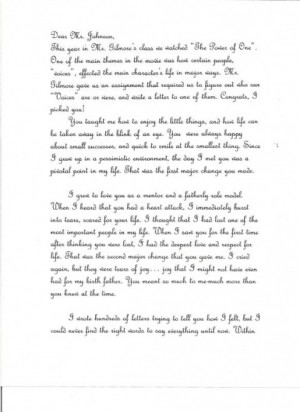 Dear Mr. Johnson,
This year in Mr. Gilmore's class we watched "The Power of One".
One of the main themes in the movie was how certain people,
"voices", effected the main character's life in major ways. Mr.
Gilmore gave us an assignment that required us to figure out who our
"Voices" are or were, and write a letter to one of them. Congrats, I
picked you!
You taught me how to enjoy the little things, and how life can
be taken away in the blink of an eye. You were always happy
about small successes, and quick to smile at the smallest thing. Since
I grew up in a pessimistic environment, the day I met you was a
pivotal point in my life. That was the first major change you made.
I grew to love you as a mentor and a fatherly role model.
When I heard that you had a heart attack, I immediately burst
into tears, scared for your life. I thought that I had lost one of the
most important people in my life. When I saw you for the first time
after thinking you were lost, I had the deepest love and respect for
life. That was the second major change that you gave me. I cried
again, but they were tears of joy... joy that I might not have even
had for my birth father. You meant so much to me-much more than
you knew at the time.
I wrote hundreds of letters trying to tell you how I felt, but I
could never find the right words to say everything until now. Within